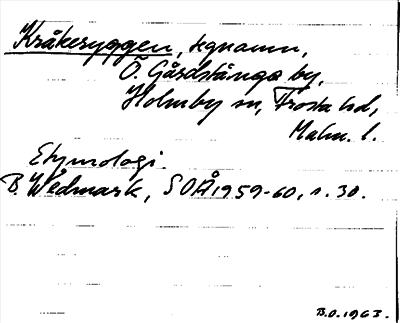 Kråkeryggen, tgnamn,
Ö. Gårdstånga by,
Holmby sn, Frosta hd,
Malm. l.
Etymologi.
B. Wedmark, SOÅ 1959-60, s. 30.
B.O. 1963.